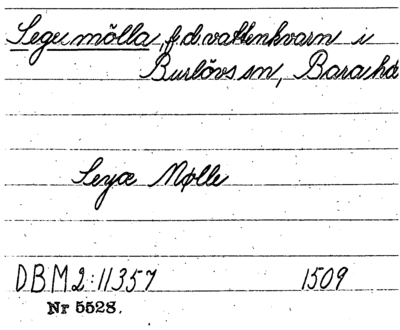 Segemölla, f.d. vattenkvarn i
Burlövs sn, Bara hd
Seyæ Mølle
DBM 2:11357 1509
Nr 5528.